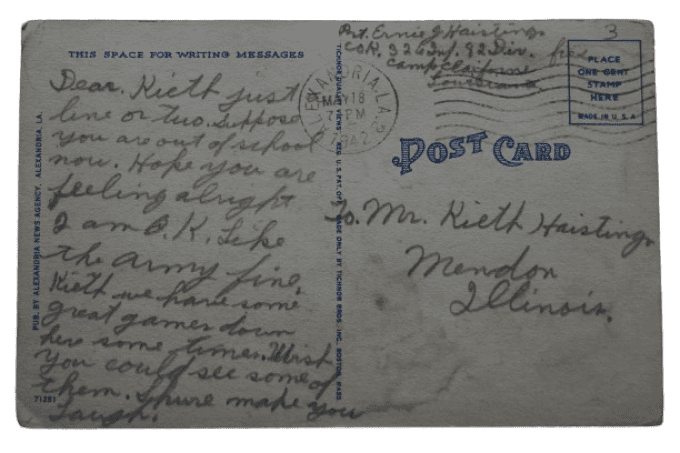 THIS SPACE FOR WRITING MESSAGES
Dear. Kieth just
line or two. Suppose
you are out of school
now. Hope you are
feeling alright
I am O.K. Like
the army fine.
Kieth we have some
great games down
here some times. Wish
you could see some of
them. Shure make you
Laugh.
PUB. BY ALEXANDRIA NEWS AGENCY, ALEXANDRIA, LA.
71251
TICHNOR QUALITY VIEWS REG. U.S. PAT. OFF. MADE ONLY BY TICHNOR BROS. INC. BOSTON, MASS.
Pvt. Ernis J Haistings
Co R. 326 Inf. 82 Div.
Camp Claiborne
Louisiana
free
3
ALEXANDRIA, LA.
MAY 18
7 PM
1942
PLACE
ONE CENT
STAMP
HERE
MADE IN U.S.A
POST CARD
To. Mr. Kieth Haistings
Mendon
Illinois.